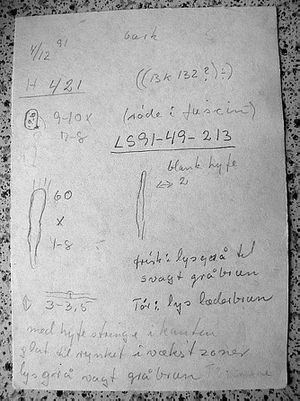 4/12 91
bark
H 421
((BK 132?):)
9-10 x
7-8
(røde i fuscin)
LS91-49-213
blank hyfe
2
60
x
7-8
frisk: lysgrå til
svagt gråbrun
3-3,5
Tør: lys læderbrun
med hyfestrenge i kanten
glat til rynket i vækstzoner
lysgrå svagt gråbrun